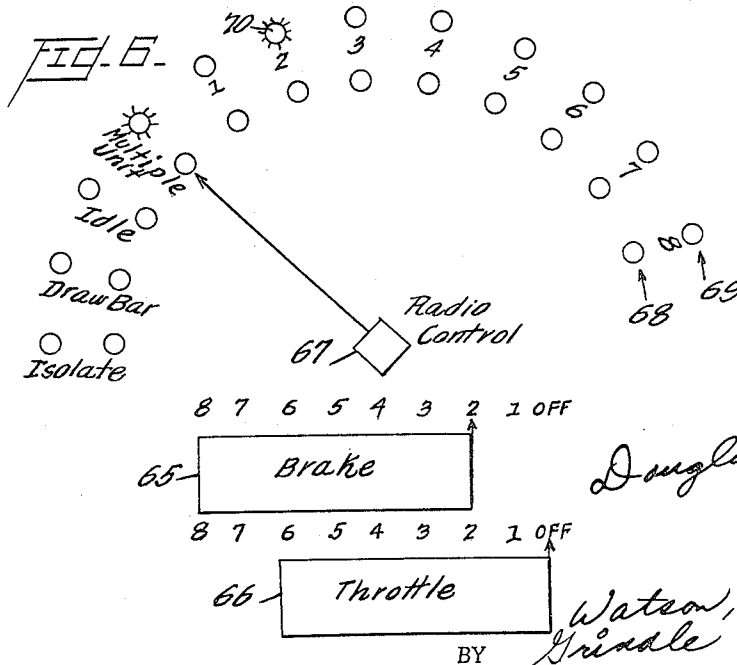 Fig. 6.
70
1 2 3 4 5 6 7 8
Multiple
Unit
Idle
Draw Bar
Isolate
68 69
Radio
Control
67
8 7 6 5 4 3 2 1 OFF
65 Brake
Dougla
8 7 6 5 4 3 2 1 OFF
66 Throttle
Watson,
BY Grindle